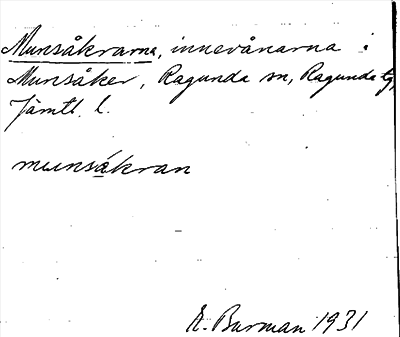 Munsåkrarna, innevånarna i
Munsåker, Ragunda sn, Ragunda tg,
Jämtl. l.
munsåkran
E. Burman 1931